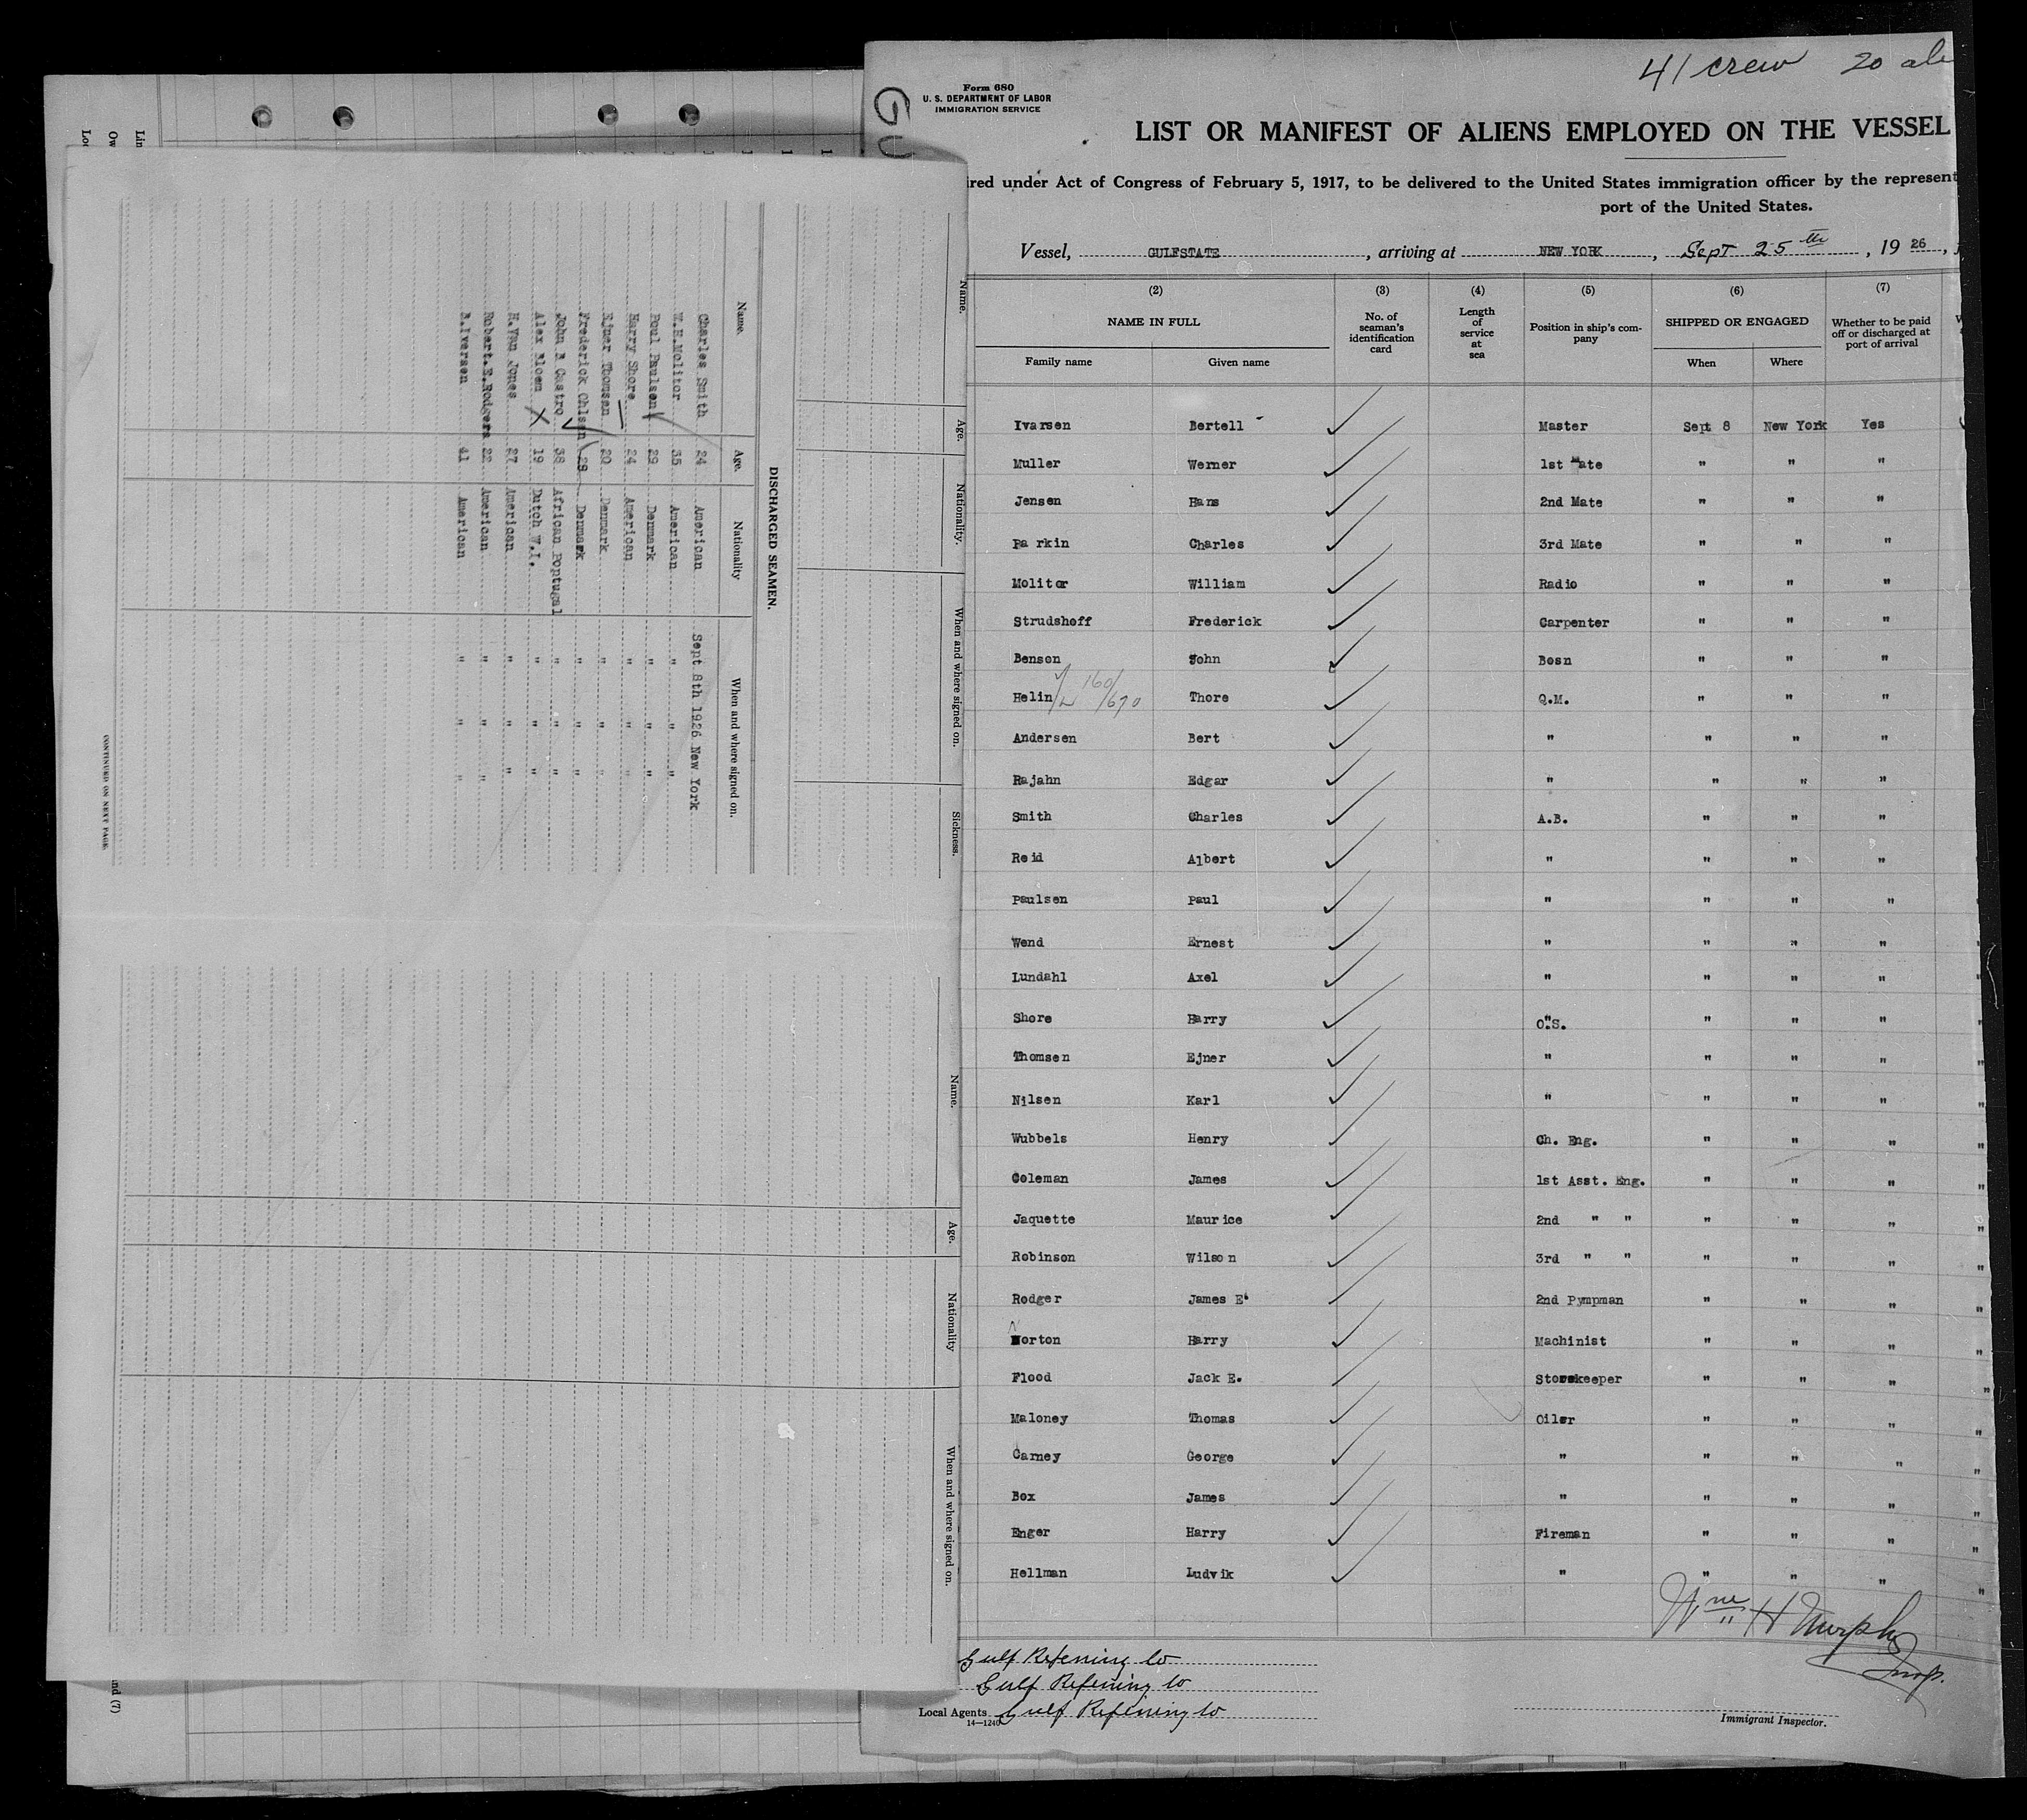 41 crew 20
Form 680
U. S. DEPARTMENT OF LABOR
IMMIGRATION SERVICE
GU
LIST OR MANIFEST OF ALIENS EMPLOYED ON THE VESSEL
ired under Act of Congress of February 5, 1917, to be delivered to the United States immigration officer by the represent
port of the United States.
Vessel, GULFSTATE , arriving at NEW YORK , Sept 25th , 19 26 ,
(2) (3) (4) (5) (6) (7)
NAME IN FULL No. of seaman's identification card Length of service at sea Position in ship's company SHIPPED OR ENGAGED Whether to be paid off or discharged at port of arrival
Family name Given name When Where
Ivarsen Bertell Master Sept 8 New York Yes
Muller Werner 1st Mate " " "
Jensen Hans 2nd Mate " " "
Parkin Charles 3rd Mate " " "
Molitor William Radio " " "
Strudshoff Frederick Carpenter " " "
Benson John Bosn " " "
Helin 160/670 Thore Q.M. " " "
Andersen Bert " " " "
Rajahn Edgar " " " "
Smith Charles A.B. " " "
Reid Albert " " " "
Paulsen Paul " " " "
Wend Ernest " " " "
Lundahl Axel " " " "
Shore Harry O.S. " " "
Thomsen Ejner " " " "
Nilsen Karl " " " "
Wubbels Henry Ch. Eng. " " "
Coleman James 1st Asst. Eng. " " "
Jaquette Maurice 2nd " " " " "
Robinson Wilson 3rd " " " " "
Rodger James E. 2nd Pympman " " "
Norton Harry Machinist " " "
Flood Jack E. Storekeeper " " "
Maloney Thomas Oiler " " "
Carney George " " " "
Box James " " " "
Enger Harry Fireman " " "
Hellman Ludvik " " " "
Wm H Murphy
Insp.
Gulf Refining Co
Gulf Refining Co
Local Agents Gulf Refining Co
14—1240
Immigrant Inspector.
Name. Age. Nationality. When and where signed on. Sickness.
DISCHARGED SEAMEN.
Name. Age. Nationality When and where signed on.
Charles Smith 24 American Sept 8th 1926 New York
W.H.Molitor 35 American " " "
Poul Paulsen 29 Denmark " " "
Harry Shore 24 American " " "
Ejner Thomsen 20 Denmark " " "
Frederick Ohlsen 28 Denmark " " "
John B Castro 38 African Portugal " " "
Alex Bloem X 19 Dutch W.I. " " "
H.Van Jones 27 American " " "
Robert.E.Rodgers 22 American " " "
B.Iversen 41 American " " "
CONTINUED ON NEXT PAGE.
Name. Age. Nationality When and where signed on.
nd (7)